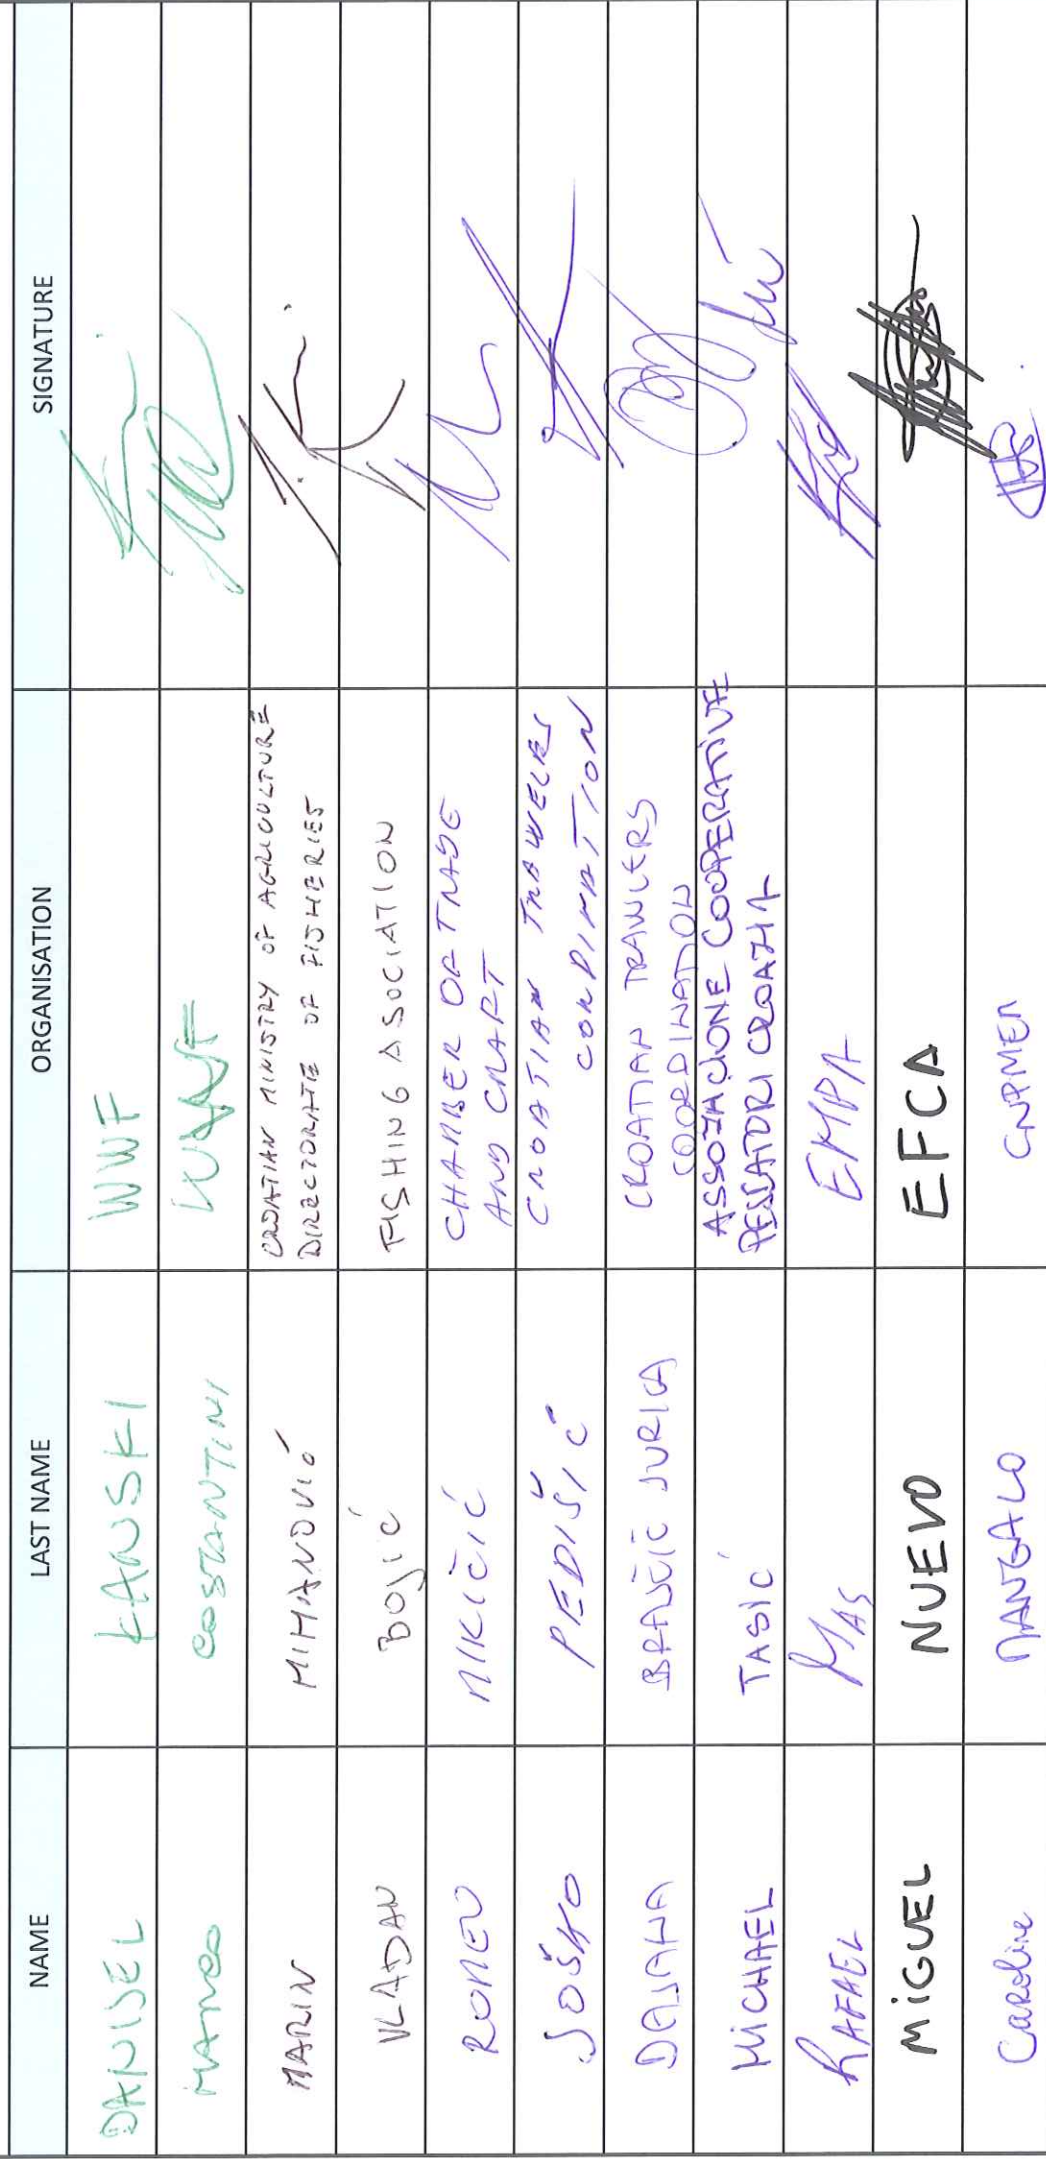 NAME LAST NAME ORGANISATION SIGNATURE
DANIJEL KANSKI WWF
MARCO COSTANTINI WWF
MARIN MIHANOVIĆ CROATIAN MINISTRY OF AGRICULTURE
DIRECTORATE OF FISHERIES
VLADAN BOJIĆ FISHING ASOCIATION
ROMEO NIKIČIĆ CHAMBER OF TRADE
AND CRAFT
JOŠKO PEDIŠIĆ CROATIAN TRAWELRES
CORDINATION
DAJANA BRAJČIĆ JURICA CROATIAN TRAWLERS
COORDINATION
MICHAEL TASIĆ ASSOZIACIONE COOPERATIVE
PESCATORI CROAZIA
RAFAEL MAS EMPA
MiGUEL NUEVO EFCA
Caroline MANGALO CNPMEM